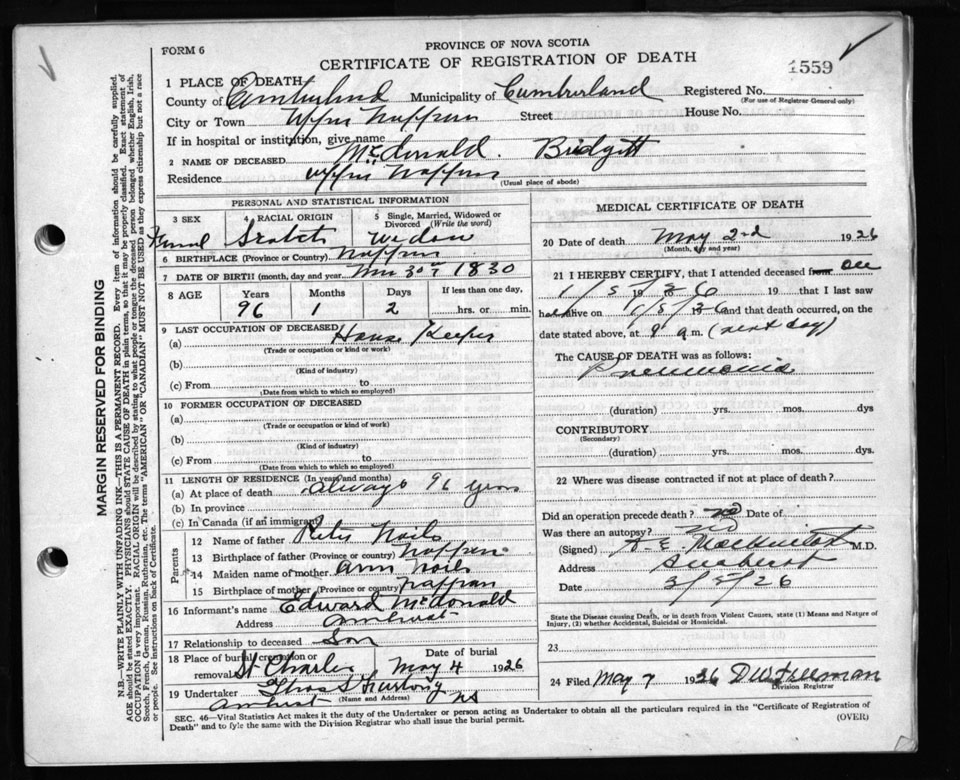 FORM 6
PROVINCE OF NOVA SCOTIA
CERTIFICATE OF REGISTRATION OF DEATH
1559
1 PLACE OF DEATH
County of Cumberland Municipality of Cumberland Registered No.
(For use of Registrar General only)
City or Town Upper Nappan Street House No.
If in hospital or institution, give name
2 NAME OF DECEASED McDonald. Bridgett
Residence Upper Nappan
(Usual place of abode)
PERSONAL AND STATISTICAL INFORMATION
3 SEX 4 RACIAL ORIGIN 5 Single, Married, Widowed or Divorced (Write the word)
Scotch Widow
6 BIRTHPLACE (Province or Country) Nappan
7 DATE OF BIRTH (month, day and year) 30 1830
8 AGE Years Months Days If less than one day,
96 1 2 hrs. or min.
9 LAST OCCUPATION OF DECEASED
(a) House Keeper
(Trade or occupation or kind or work)
(b)
(Kind of industry)
(c) From to
(Date from which to which so employed)
10 FORMER OCCUPATION OF DECEASED
(a)
(Trade or occupation or kind of work)
(b)
(Kind of industry)
(c) From to
(Date from which to which so employed)
11 LENGTH OF RESIDENCE (In years and months)
(a) At place of death always 96 years
(b) In province
(c) In Canada (if an immigrant)
Parents
12 Name of father Peter Noiles
13 Birthplace of father (Province or country) Nappan
14 Maiden name of mother Ann Noiles
15 Birthplace of mother (Province or country) Nappan
16 Informant's name Edward McDonald
Address Amherst
17 Relationship to deceased Son
18 Place of burial, cremation or removal St Charles Date of burial May 4 1926
19 Undertaker
(Name and Address)
Amherst NS
MEDICAL CERTIFICATE OF DEATH
20 Date of death May 2nd 1926
(Month, day and year)
21 I HEREBY CERTIFY, that I attended deceased from on
1/5/26 19 that I last saw
h alive on 1/5/26 and that death occurred, on the
date stated above, at 9 a.m. (next day)
The CAUSE OF DEATH was as follows:
Pneumonia
(duration) yrs. mos. dys
CONTRIBUTORY
(Secondary)
(duration) yrs. mos. dys.
22 Where was disease contracted if not at place of death?
Did an operation precede death? no Date of
Was there an autopsy? no
(Signed) M.D.
Address Amherst
Date 3/5/26
State the Disease causing Death, or in death from Violent Causes, state (1) Means and Nature of Injury, (2) whether Accidental, Suicidal or Homicidal.
23
24 Filed May 7 1926 D W Freeman
Division Registrar
SEC. 46—Vital Statistics Act makes it the duty of the Undertaker or person acting as Undertaker to obtain all the particulars required in the "Certificate of Registration of
Death" and to fyle the same with the Division Registrar who shall issue the burial permit.
(OVER)
MARGIN RESERVED FOR BINDING
N.B.—WRITE PLAINLY WITH UNFADING INK—THIS IS A PERMANENT RECORD. Every item of information should be carefully supplied.
AGE should be stated EXACTLY. PHYSICIANS should STATE CAUSE OF DEATH in plain terms, so that it may be properly classified. Exact statement of
OCCUPATION is very important. RACIAL ORIGIN will be described by stating to what people or tongue the deceased person belonged whether English, Irish,
Scotch, French, German, Russian, Ruthenian, etc. The terms "AMERICAN" OR "CANADIAN" MUST NOT BE USED as they express citizenship but not a race
or people. See instructions on back of Certificate.